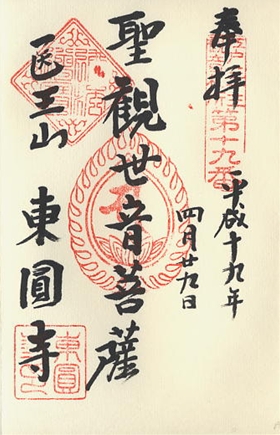 奉拝
第十九番
平成十九年
四月廿九日
聖觀世音菩薩
医王山
東圓寺
東圓